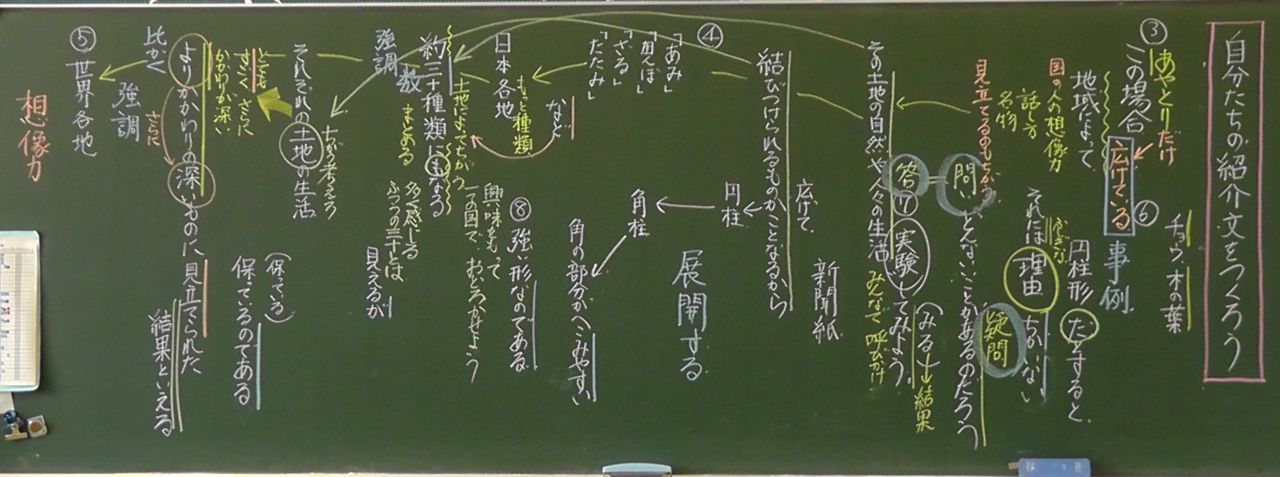 自分たちの紹介文をつくろう
③
あやとりだけ
この場合
広げている
地域によって
国の人の想像力
話し方
名物
見立てるのもちがう
その土地の自然や人々の生活
結びつけられるものがことなるから
④
「あみ」
「田んぼ」
「ざる」
「たたみ」
日本各地
もっと種類
など
土地によってちがう
約三十種類にもなる
数
強調
まとめる
多く感じる
ふつうの三十とは
興味をもって
一つの国で、おどろかせよう
見えるが
ちがう考えろ
それぞれの土地の生活
とても
すごく さらに
かかわりが深い
よりかかわりの深いものに見立てられた
さらに
比かく
強調
結果といえる
(保っている)
保っているのである
⑤
世界各地
想像力
⑥
チョウ、木の葉
事例
円柱形だとすると、
それには理由ちがいない
疑問
問い
どんなことがあるのだろう
答
⑦
実験してみよう。
(みる)→結果
みんなで呼びかけ
新聞紙
広げて、
円柱
角柱
角の部分がへこみやすい
展開する
⑧
強い形なのである